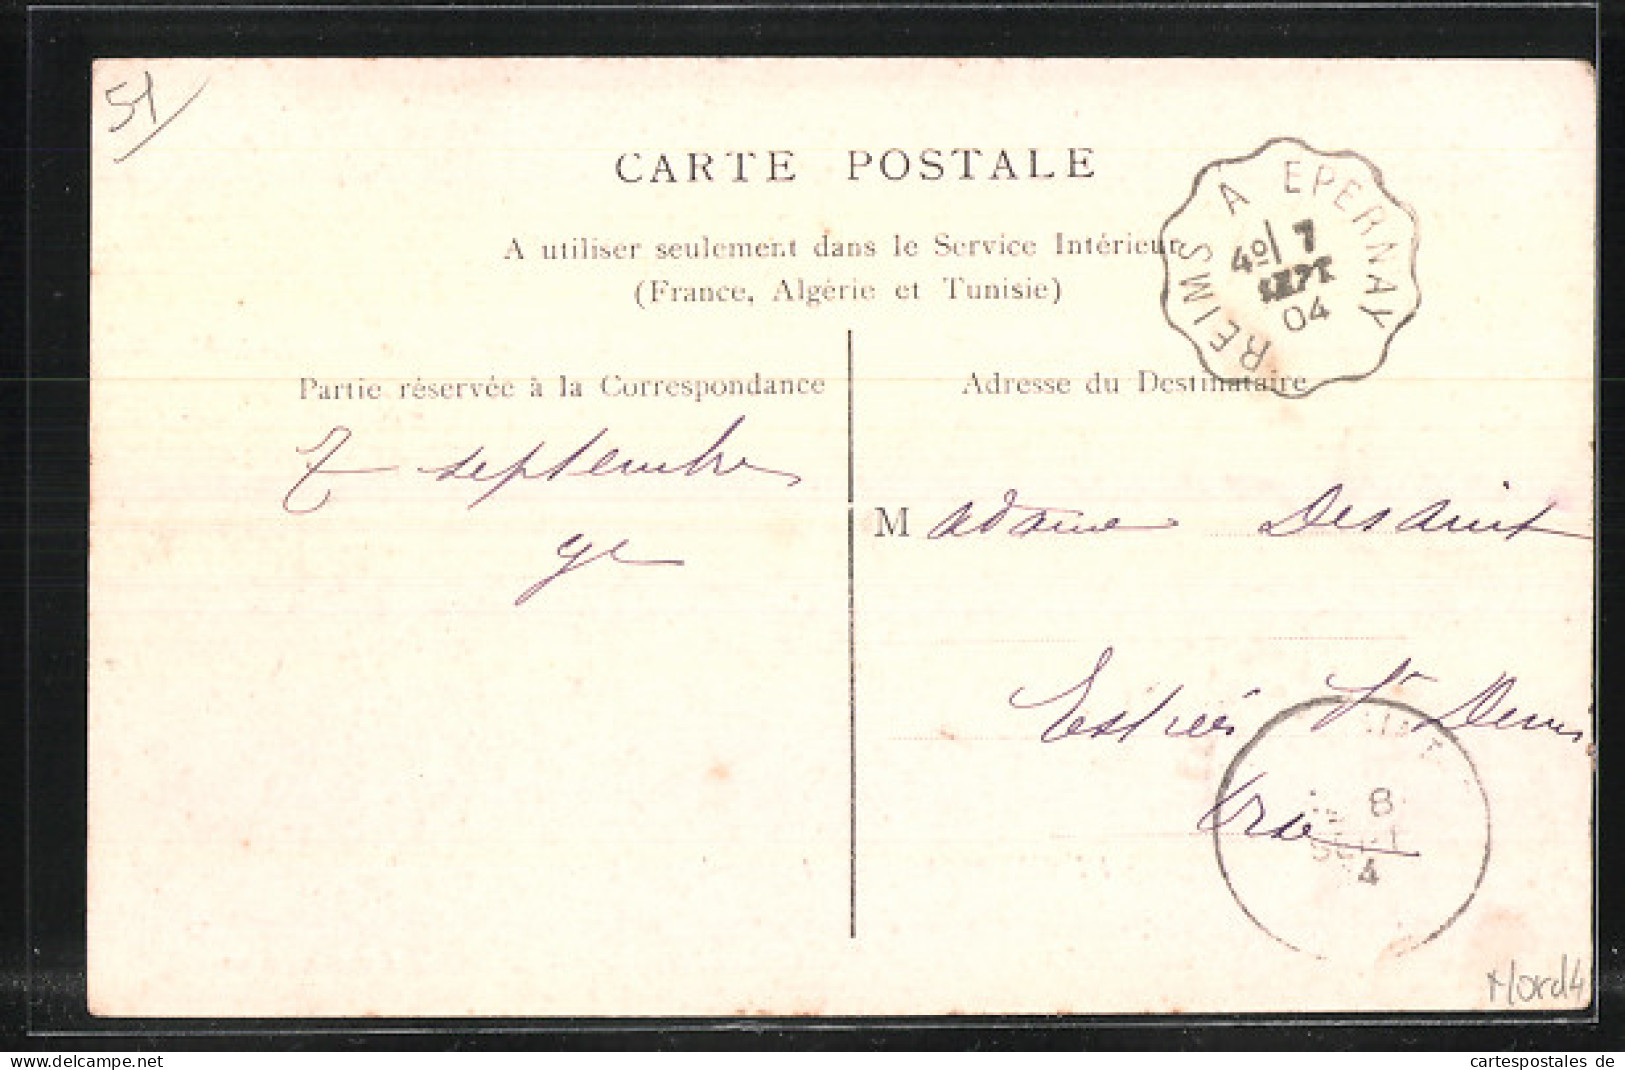 51
CARTE POSTALE
A utiliser seulement dans le Service Intérieur
(France, Algérie et Tunisie)
REIMS A EPERNAY
4º/ 7
SEPT
04
Partie réservée à la Correspondance
7 septembre
Adresse du Destinataire
Madame Desaint
Estrées St Denis
Oise
8
SEPT
4
Nord4
cartespostales de